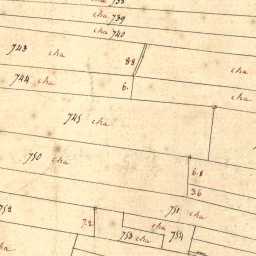 738
cha 739
cha 740
743 cha 88 cha
744 cha 6. cha
745 cha
750 cha 6.8
36
752 751 cha
7.2 cha
cha 753 cha 754